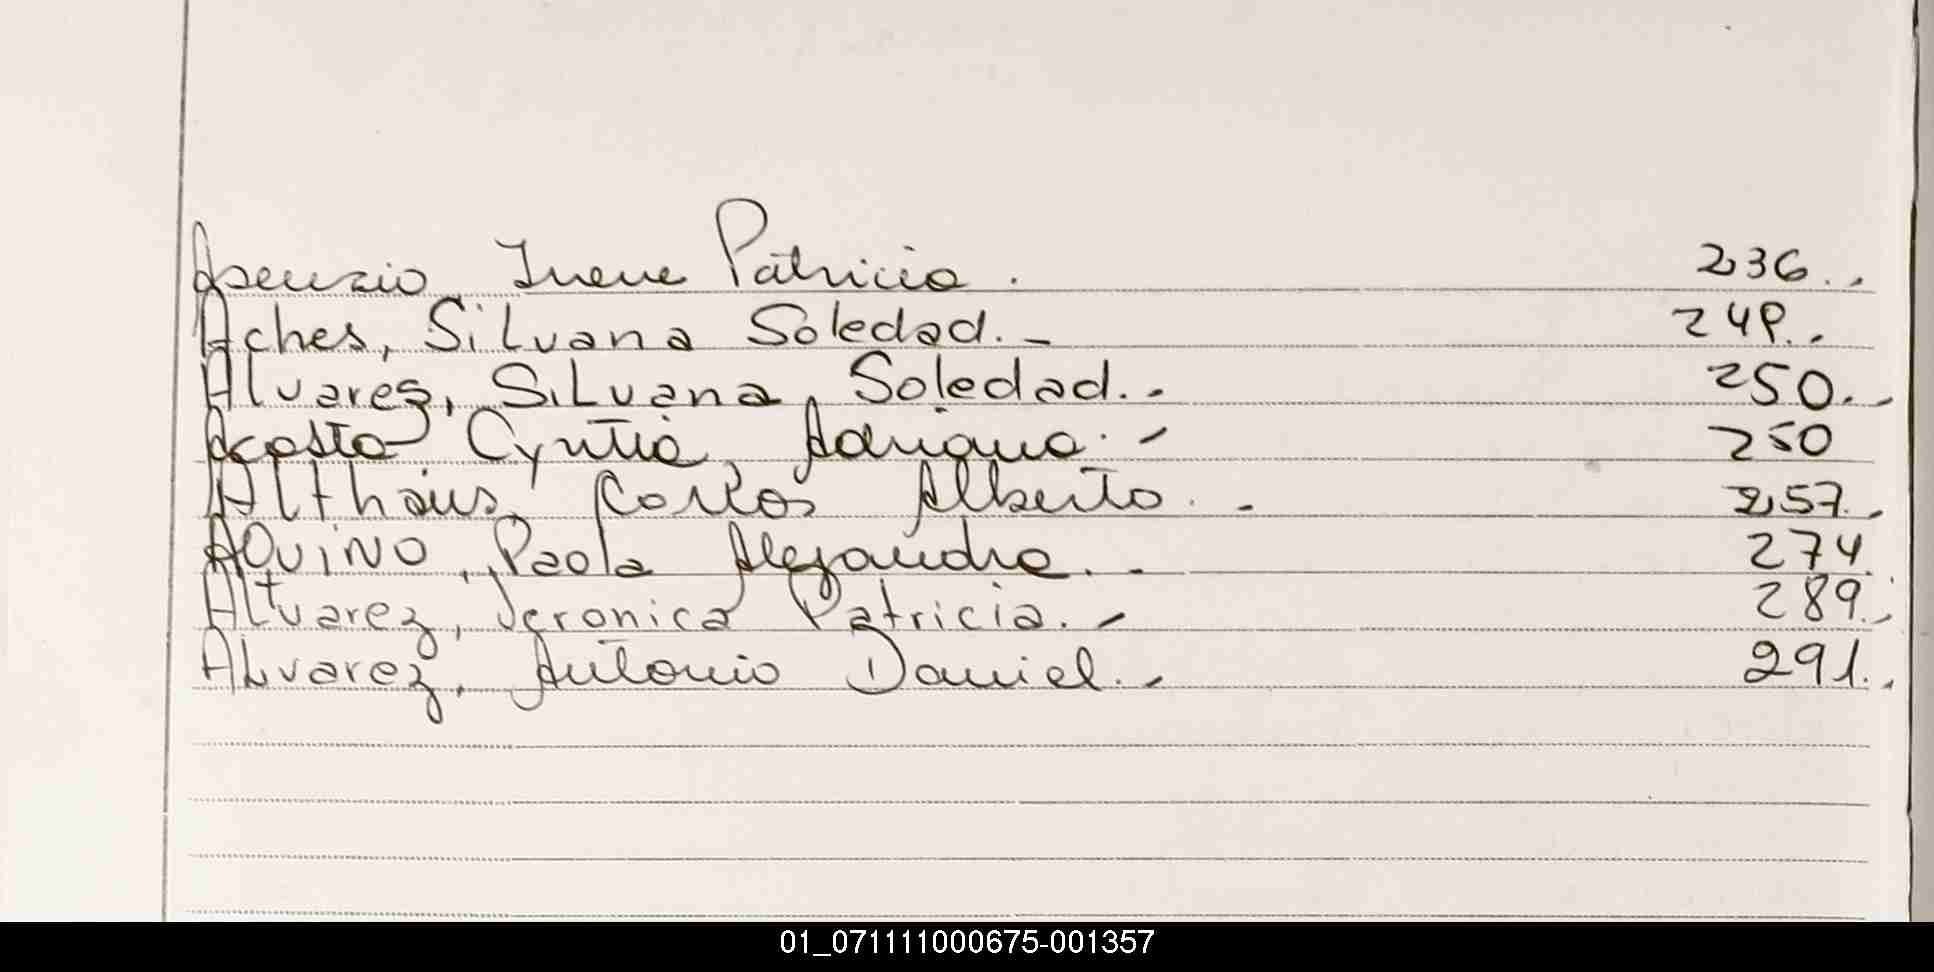 Asenzio Irene Patricia. 236.-
Aches, Silvana Soledad.- 249.-
Alvares, Silvana Soledad.- 250.-
Acosta Cyntia Adriana.- 250
Althaus, Carlos Alberto.- 257.-
AQUINO, Paola Alejandra.- 274
Alvarez, Veronica Patricia.- 289.-
Alvarez, Antonio Daniel.- 291.-
01_071111000675-001357